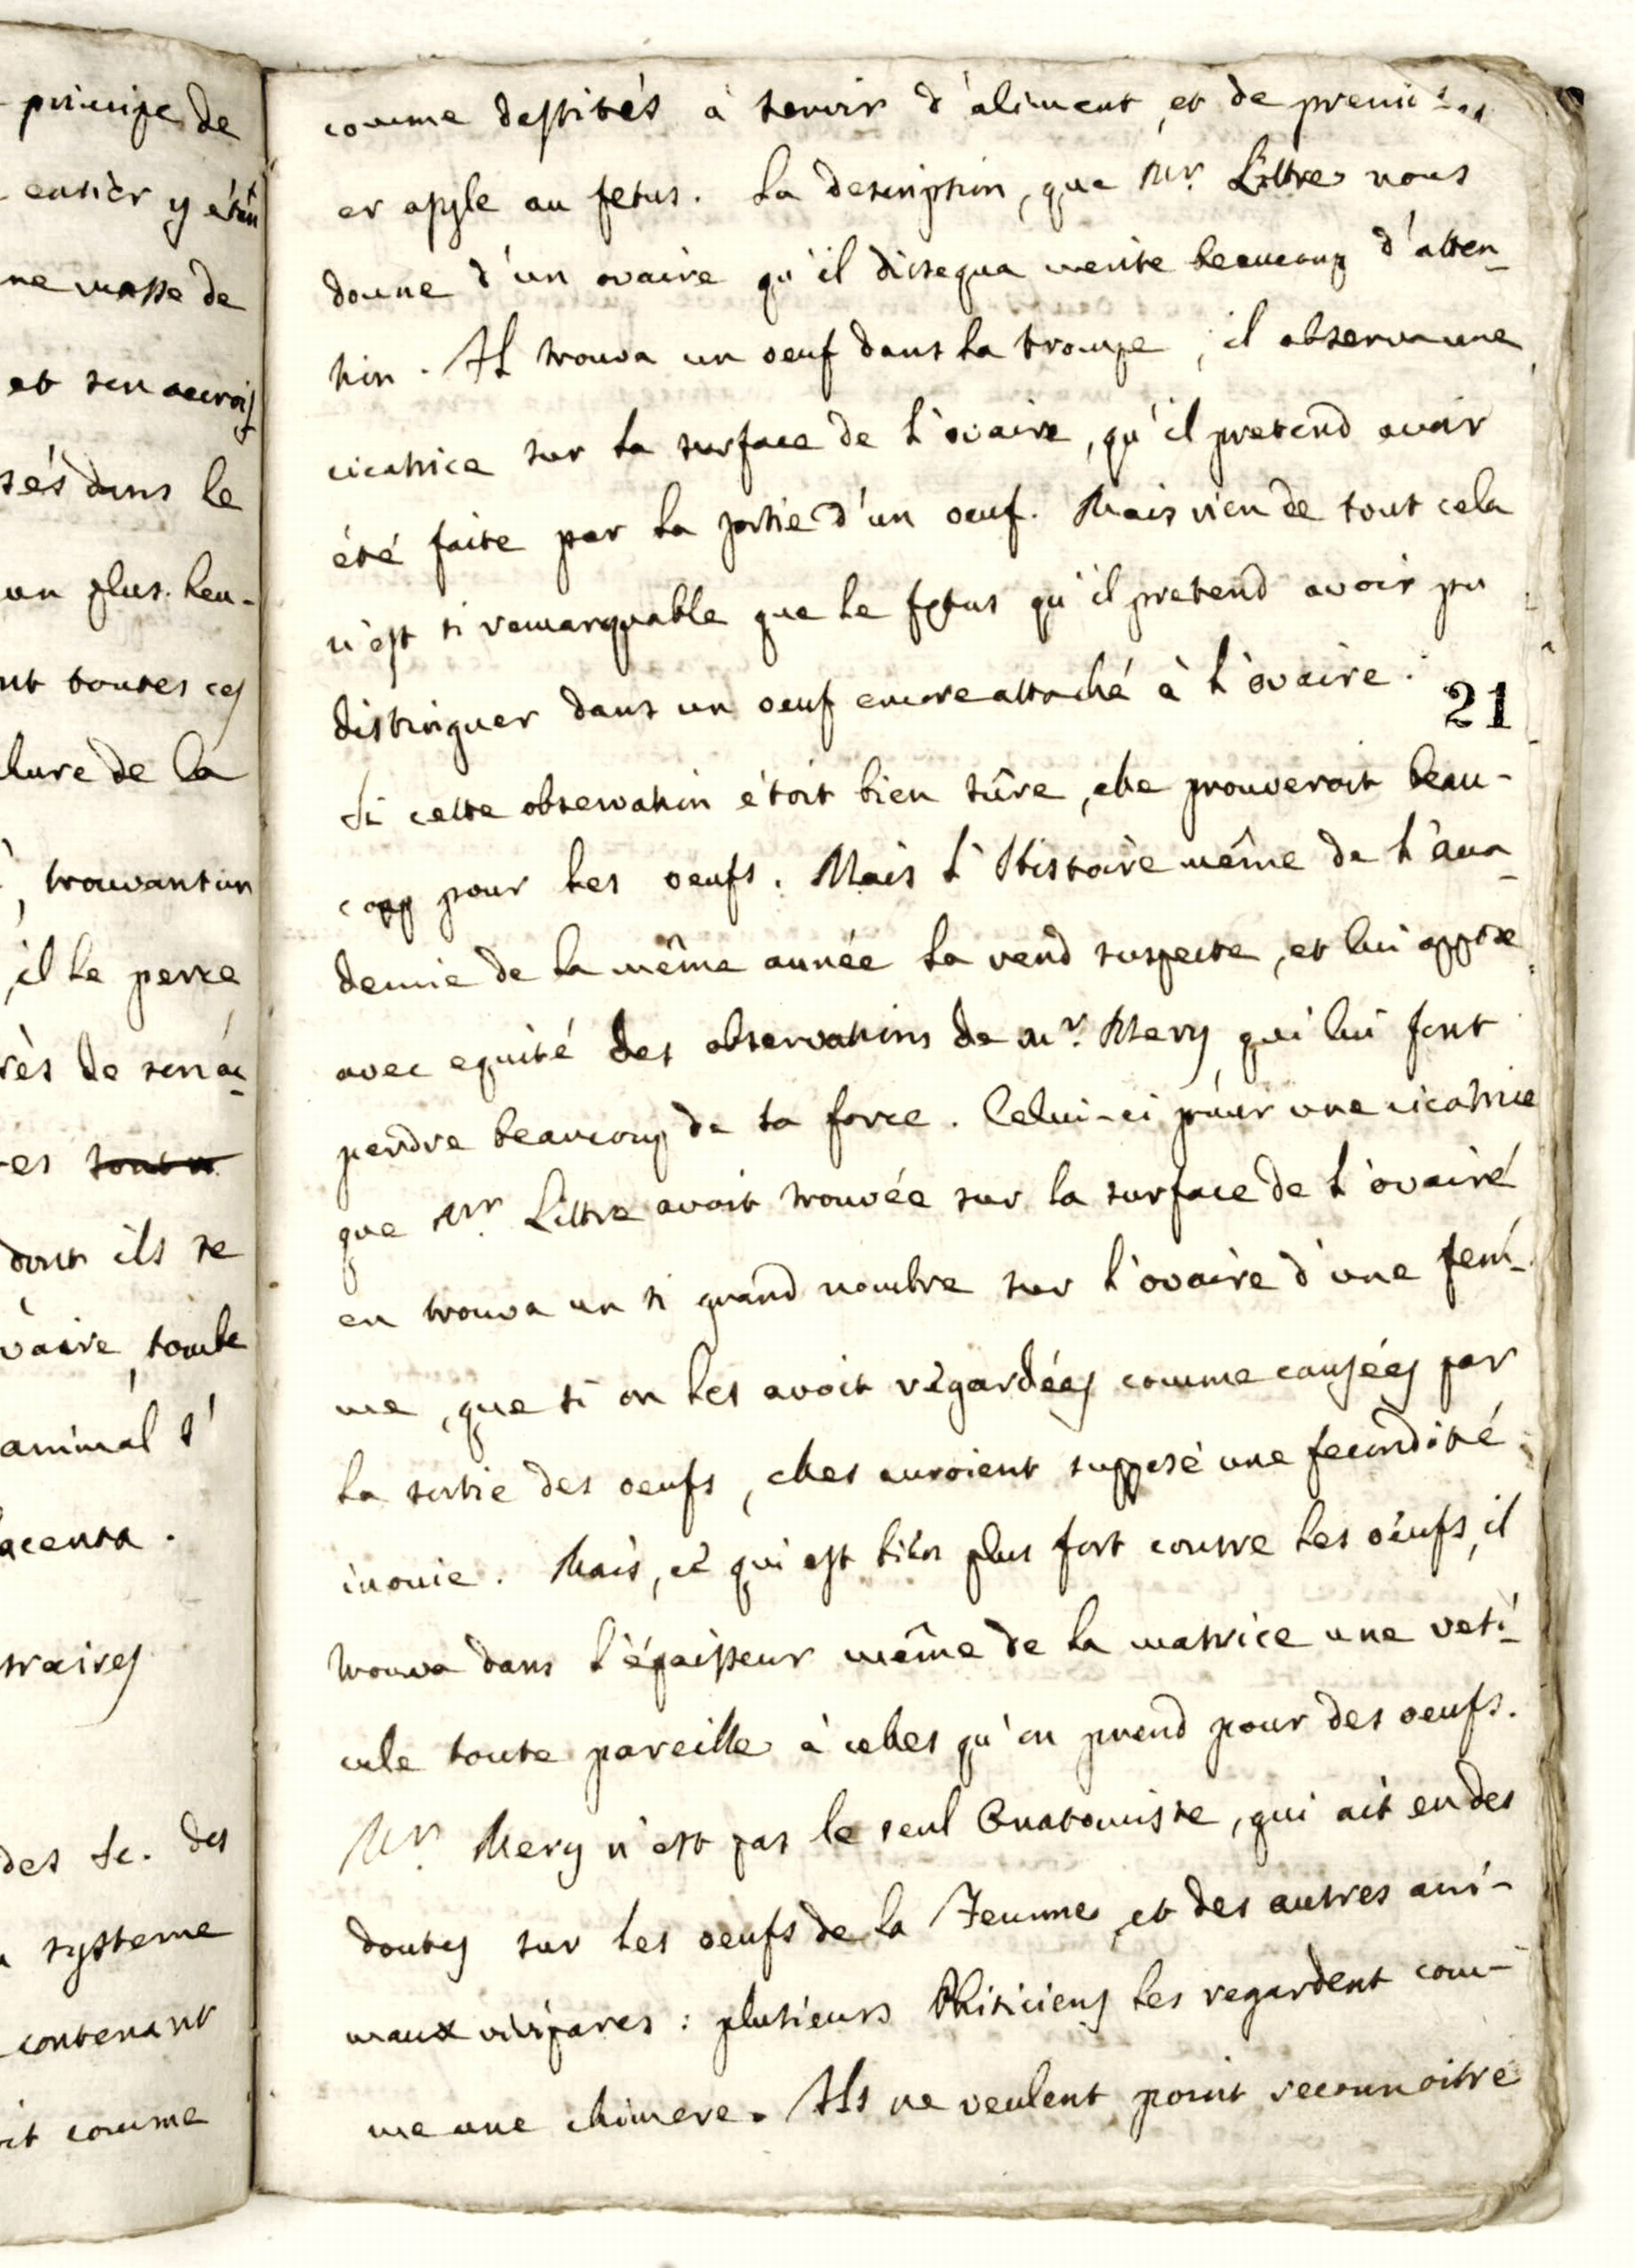 principe de
entier y étan
ne masse de
et son accrois
sés dans le
un plus heu-
nt toutes ces
lure de la
trouvant un
il le perce
rès de son ac
es tout a
dont ils se
vaire, tombe
animal s'
acenta.
traires
des Sc. des
systeme
contenant
it comme
comme destinés à servir d'aliment, et de premi
er asyle au fetus. La description, que Mr. Littre nous
donne d'un ovaire qu'il dissequa merite beaucoup d'atten-
tion. Il trouva un oeuf dans la trompe, il observa une
cicatrice sur la surface de l'ovaire, qu'il pretend avoir
été faite par la sortie d'un oeuf. Mais rien de tout cela
n'est si remarquable que le fetus qu'il pretend avoir pu
distinguer dans un oeuf encore attaché à l'ovaire.
21
Si cette observation étoit bien sûre, elle prouveroit beau-
coup pour les oeufs. Mais l'Histoire même de l'Aca-
demie de la même année la rend suspecte, et lui oppose
avec equité des observations de Mr. Mery qui lui font
perdre beaucoup de sa force. Celui-ci pour une cicatrice
que Mr. Littre avoit trouvée sur la surface de l'ovaire
en trouva un si grand nombre sur l'ovaire d'une fem-
me, que si on les avoit regardées comme causées par
la sortie des oeufs, elles auroient supposé une fecondité
inouie. Mais, ce qui est bien plus fort contre les oeufs, il
trouva dans l'épaisseur même de la matrice une vesi-
cule toute pareille à celles qu'on prend pour des oeufs.
Mr. Mery n'est pas le seul Anatomiste, qui ait eu des
doutes sur les oeufs de la Femme, et des autres ani-
maux vivipares: plusieurs Phisiciens les regardent com-
me une chimere. Ils ne veulent point reconnoitre